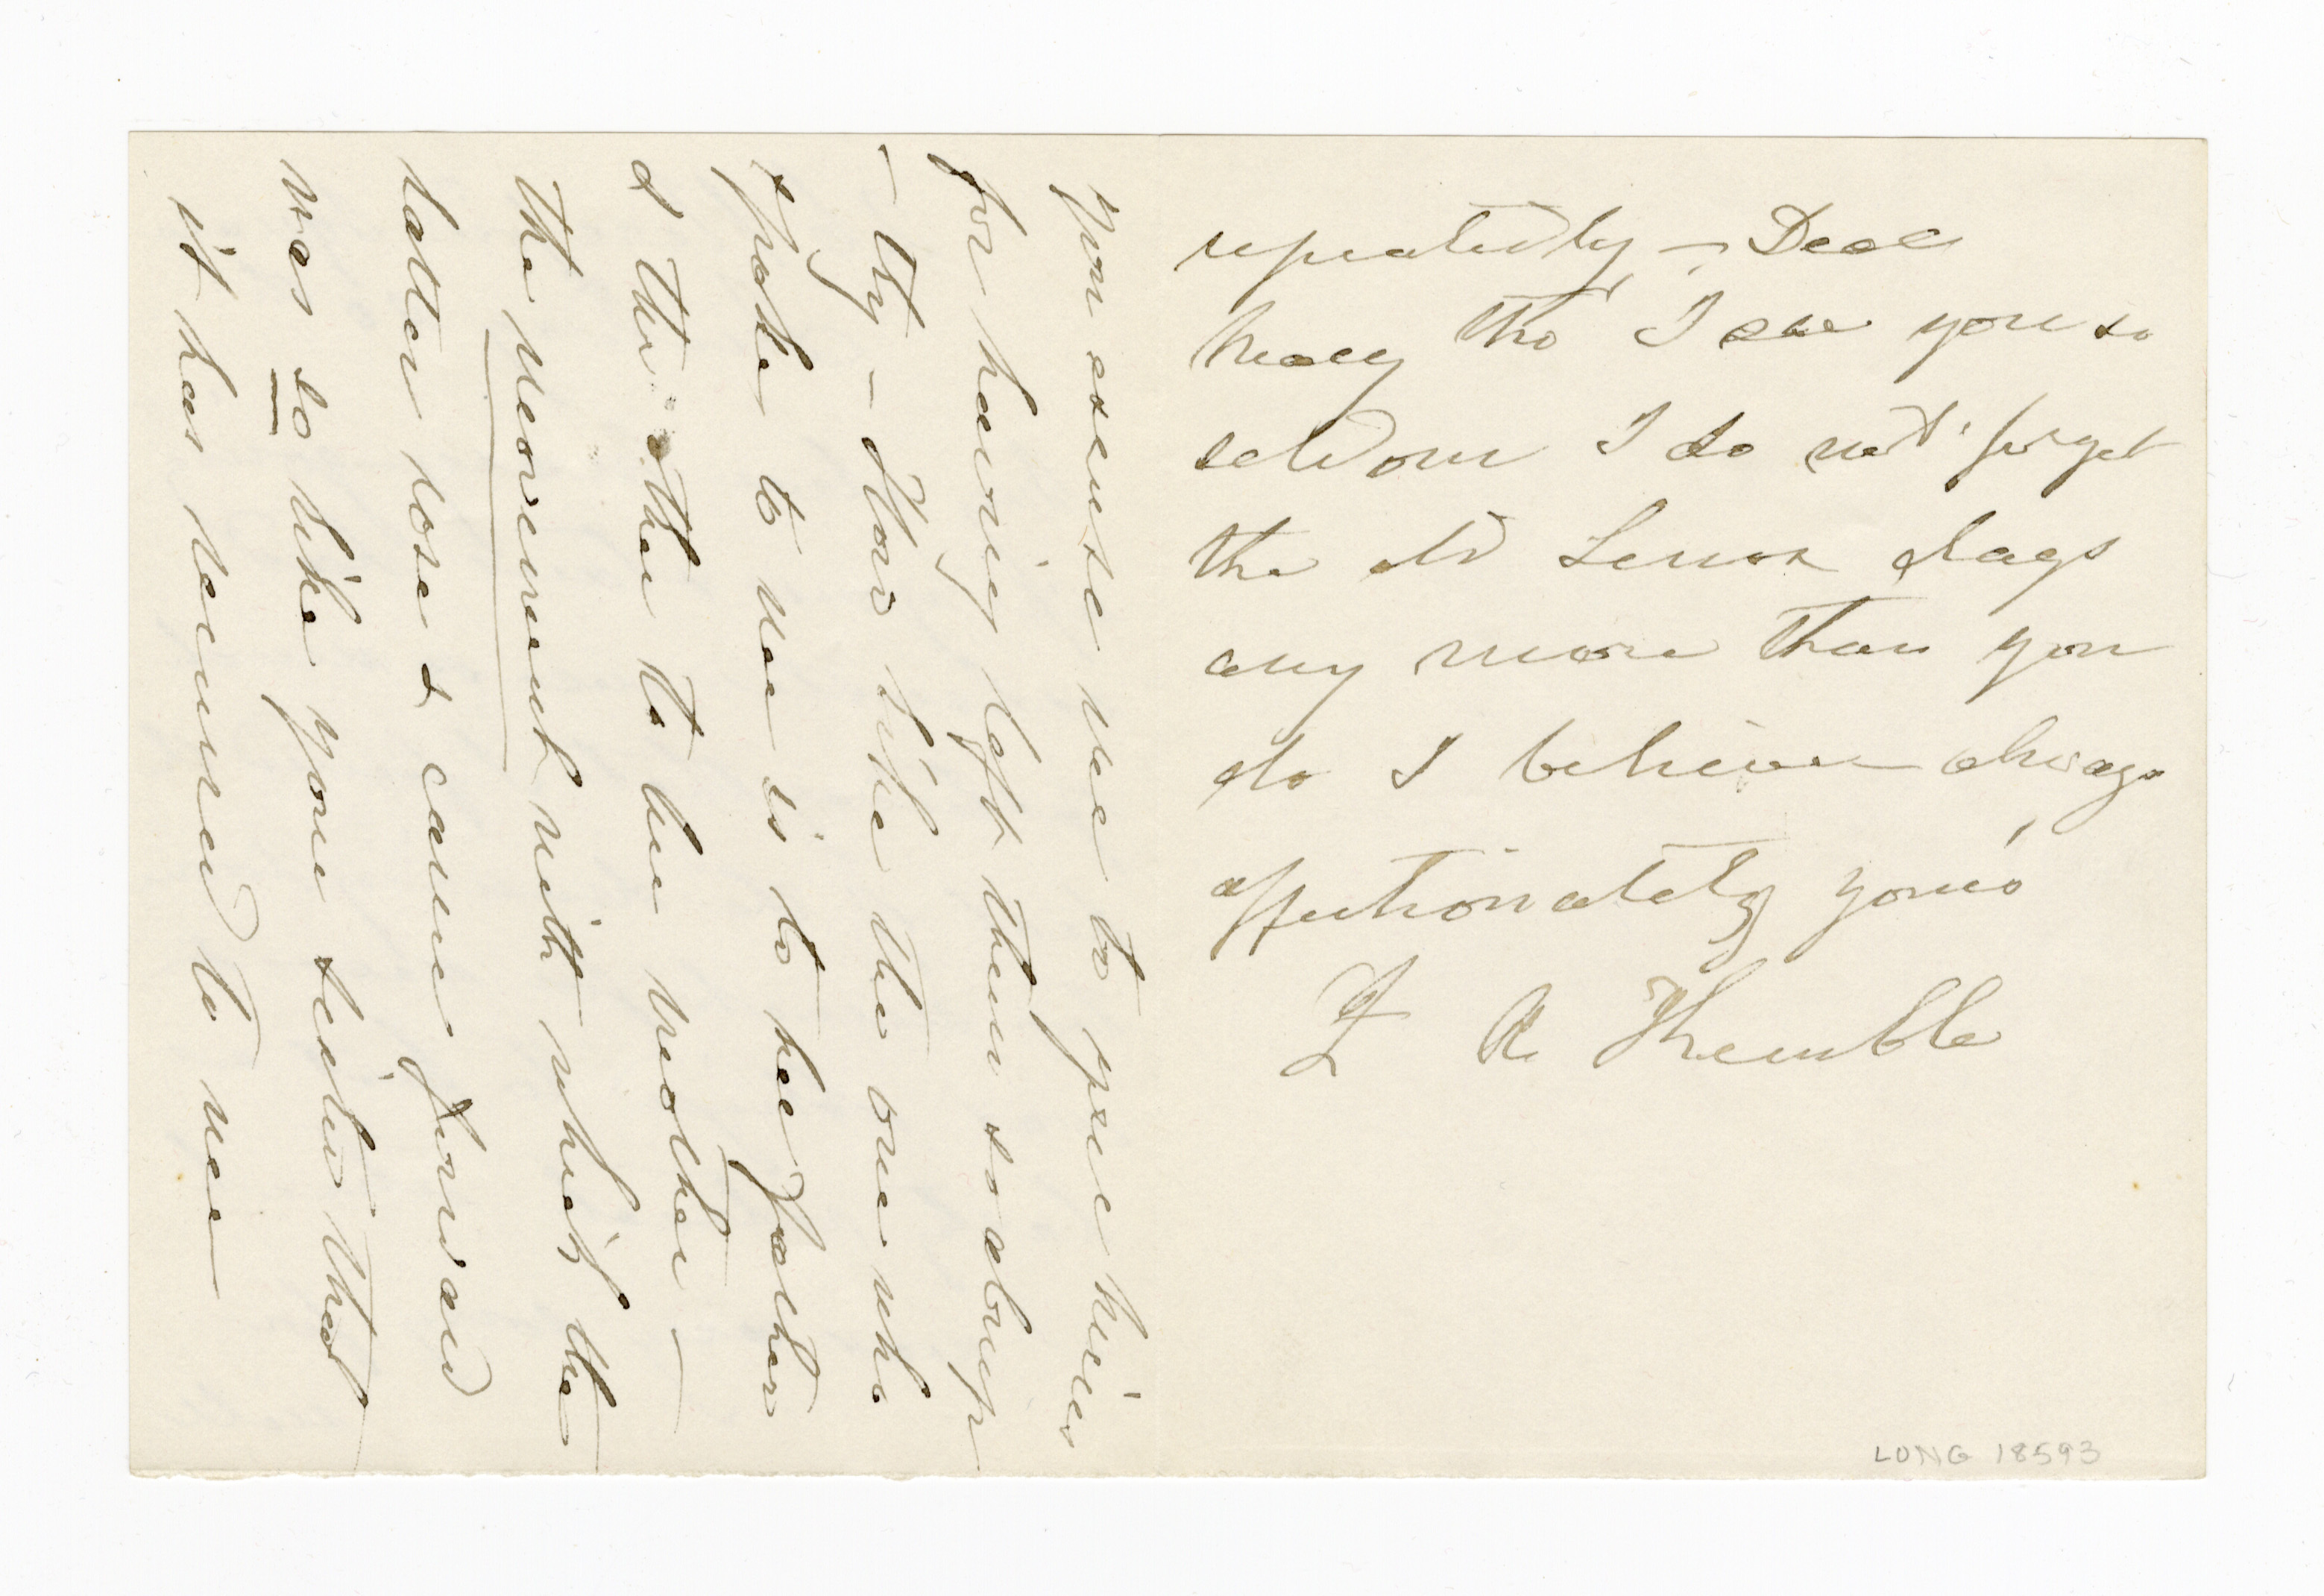 you excuse me to your nieces
for having left them so abrup
-tly - How like the one who
spoke to me is to her father
& the other to her mother -
the movement with which the
latter rose & came forward
was so like your sister that
it has recurred to me
repeatedly - Dear
Mary tho' I see you so
seldom I do not forget
the old Lenox days
any more than you
do I believe always
affectionately yours
F A Kemble
LONG 18593